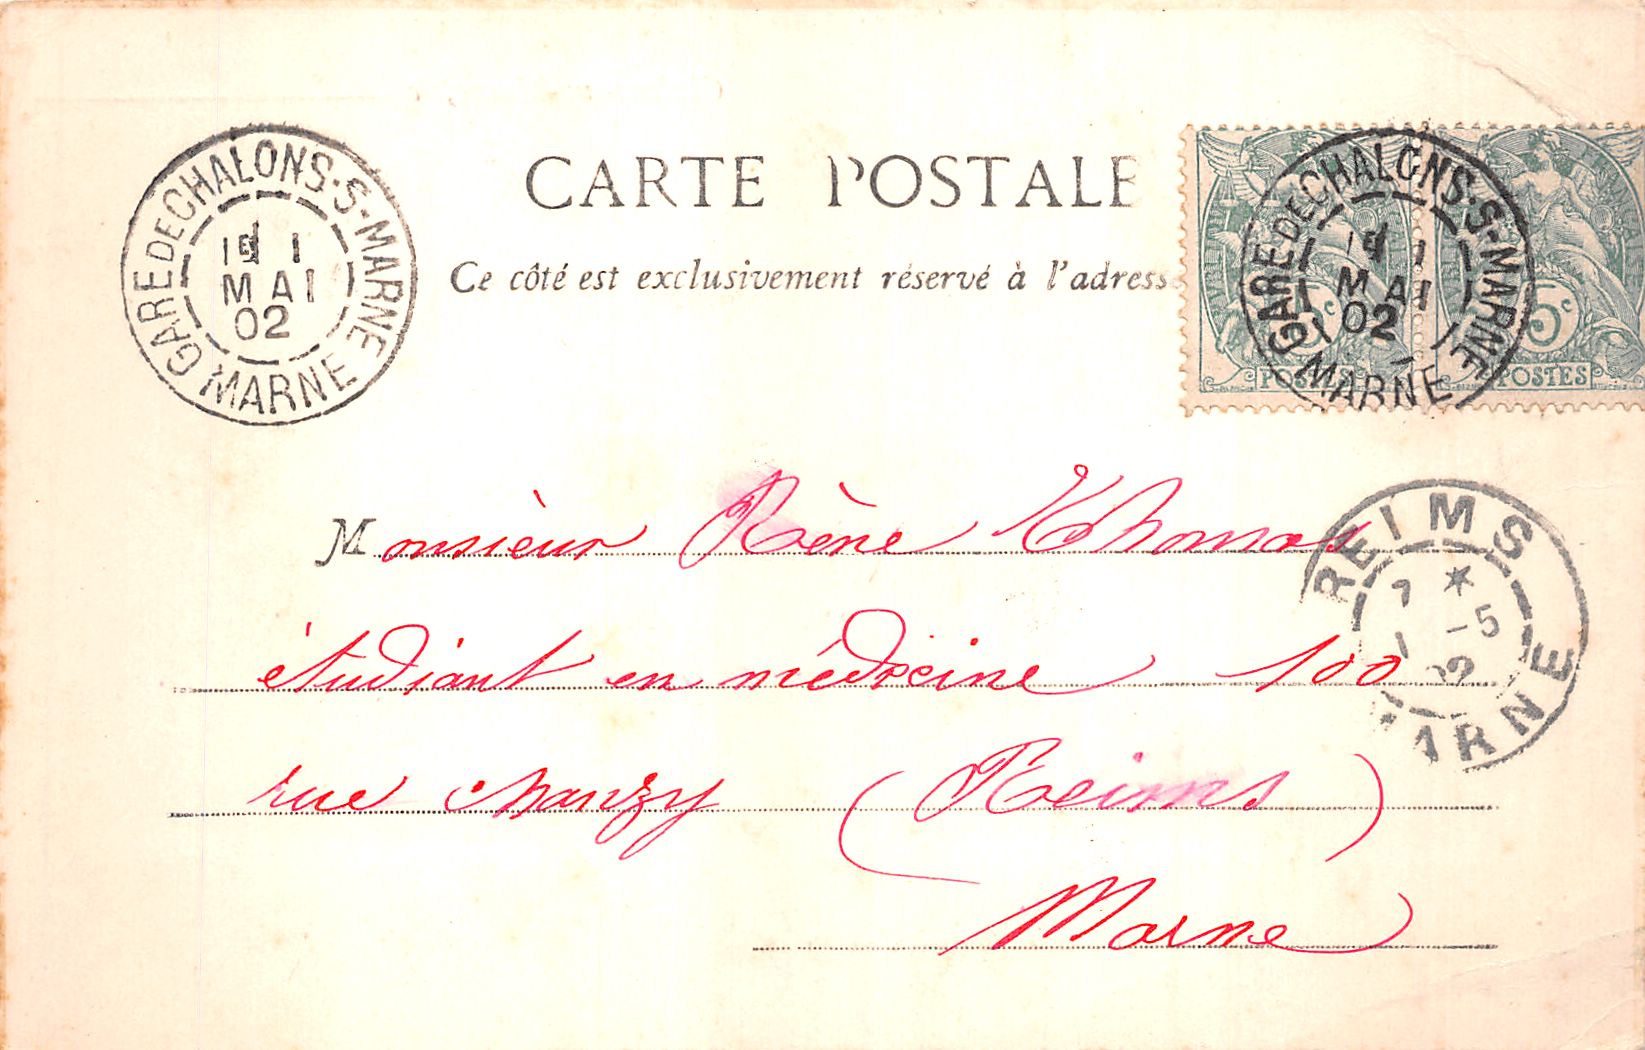 CARTE POSTALE
Ce côté est exclusivement réservé à l'adresse
GARE DE CHALONS-S-MARNE
1
MAI
02
MARNE
GARE DE CHALONS-S-MARNE
1
MAI
02
MARNE
5c
POSTES
5c
POSTES
REIMS
7 *
1 -5
02
MARNE
Monsieur Rène Thomas
étudiant en médecine 100
rue Chanzy (Reims)
Marne